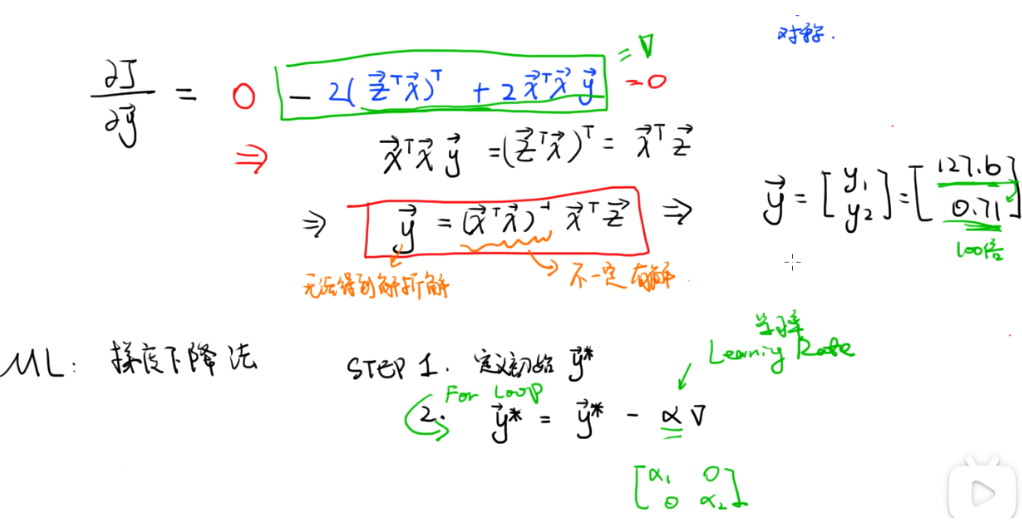 对称.
∂J/∂y⃗ = 0 - 2(z⃗ᵀx⃗)ᵀ + 2x⃗ᵀx⃗y⃗ = ∇ = 0
⇒ x⃗ᵀx⃗y⃗ = (z⃗ᵀx⃗)ᵀ = x⃗ᵀz⃗
⇒ y⃗ = (x⃗ᵀx⃗)⁻¹ x⃗ᵀz⃗ ⇒ y⃗ = [y₁ y₂] = [127.6 0.71]
100倍
无法得到解析解 不一定有解.
ML: 梯度下降法 STEP 1. 定义初始 y⃗*
学习率
Learning Rate
For Loop
2. y⃗* = y⃗* - α∇
[α₁ 0
0 α₂]